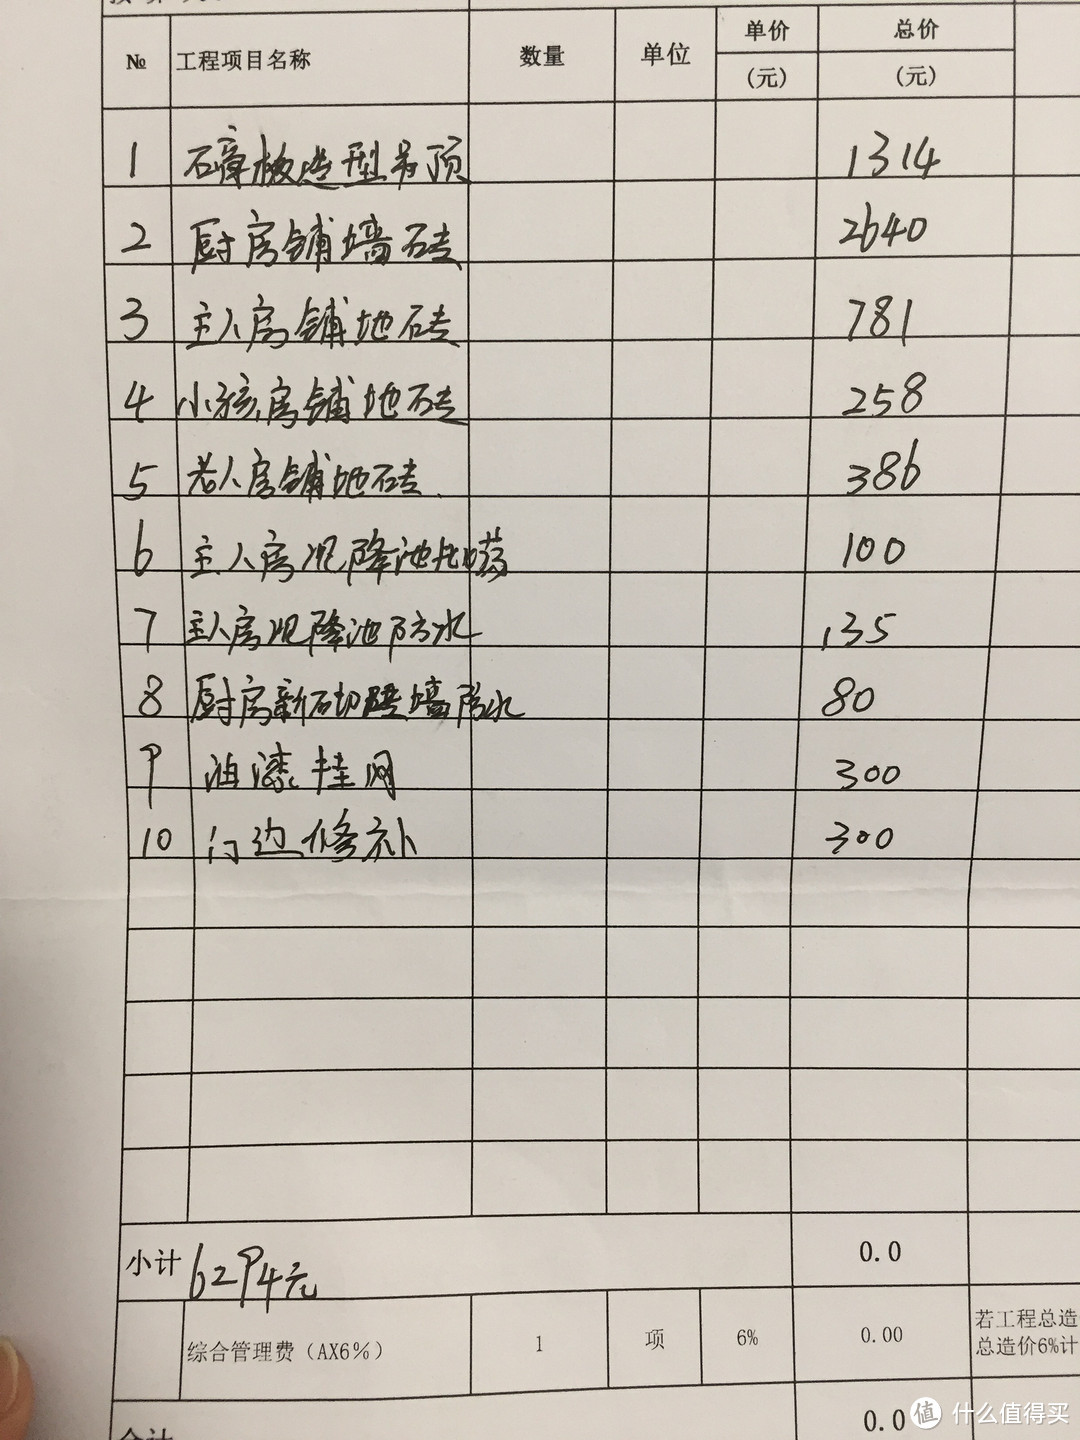 № 工程项目名称 数量 单位 单价 (元) 总价 (元)
1 石障板造型吊顶 1314
2 厨房铺墙砖 2640
3 主人房铺地砖 781
4 小孩房铺地砖 258
5 老人房铺地砖 386
6 主人房沉降池 100
7 主人房沉降池防水 135
8 厨房新石切 墙防水 80
9 油漆挂网 300
10 门边修补 300
小计 6294元 0.0
综合管理费（AX6%） 1 项 6% 0.00 若工程总造
总造价6%计
合计 0.0
值 什么值得买